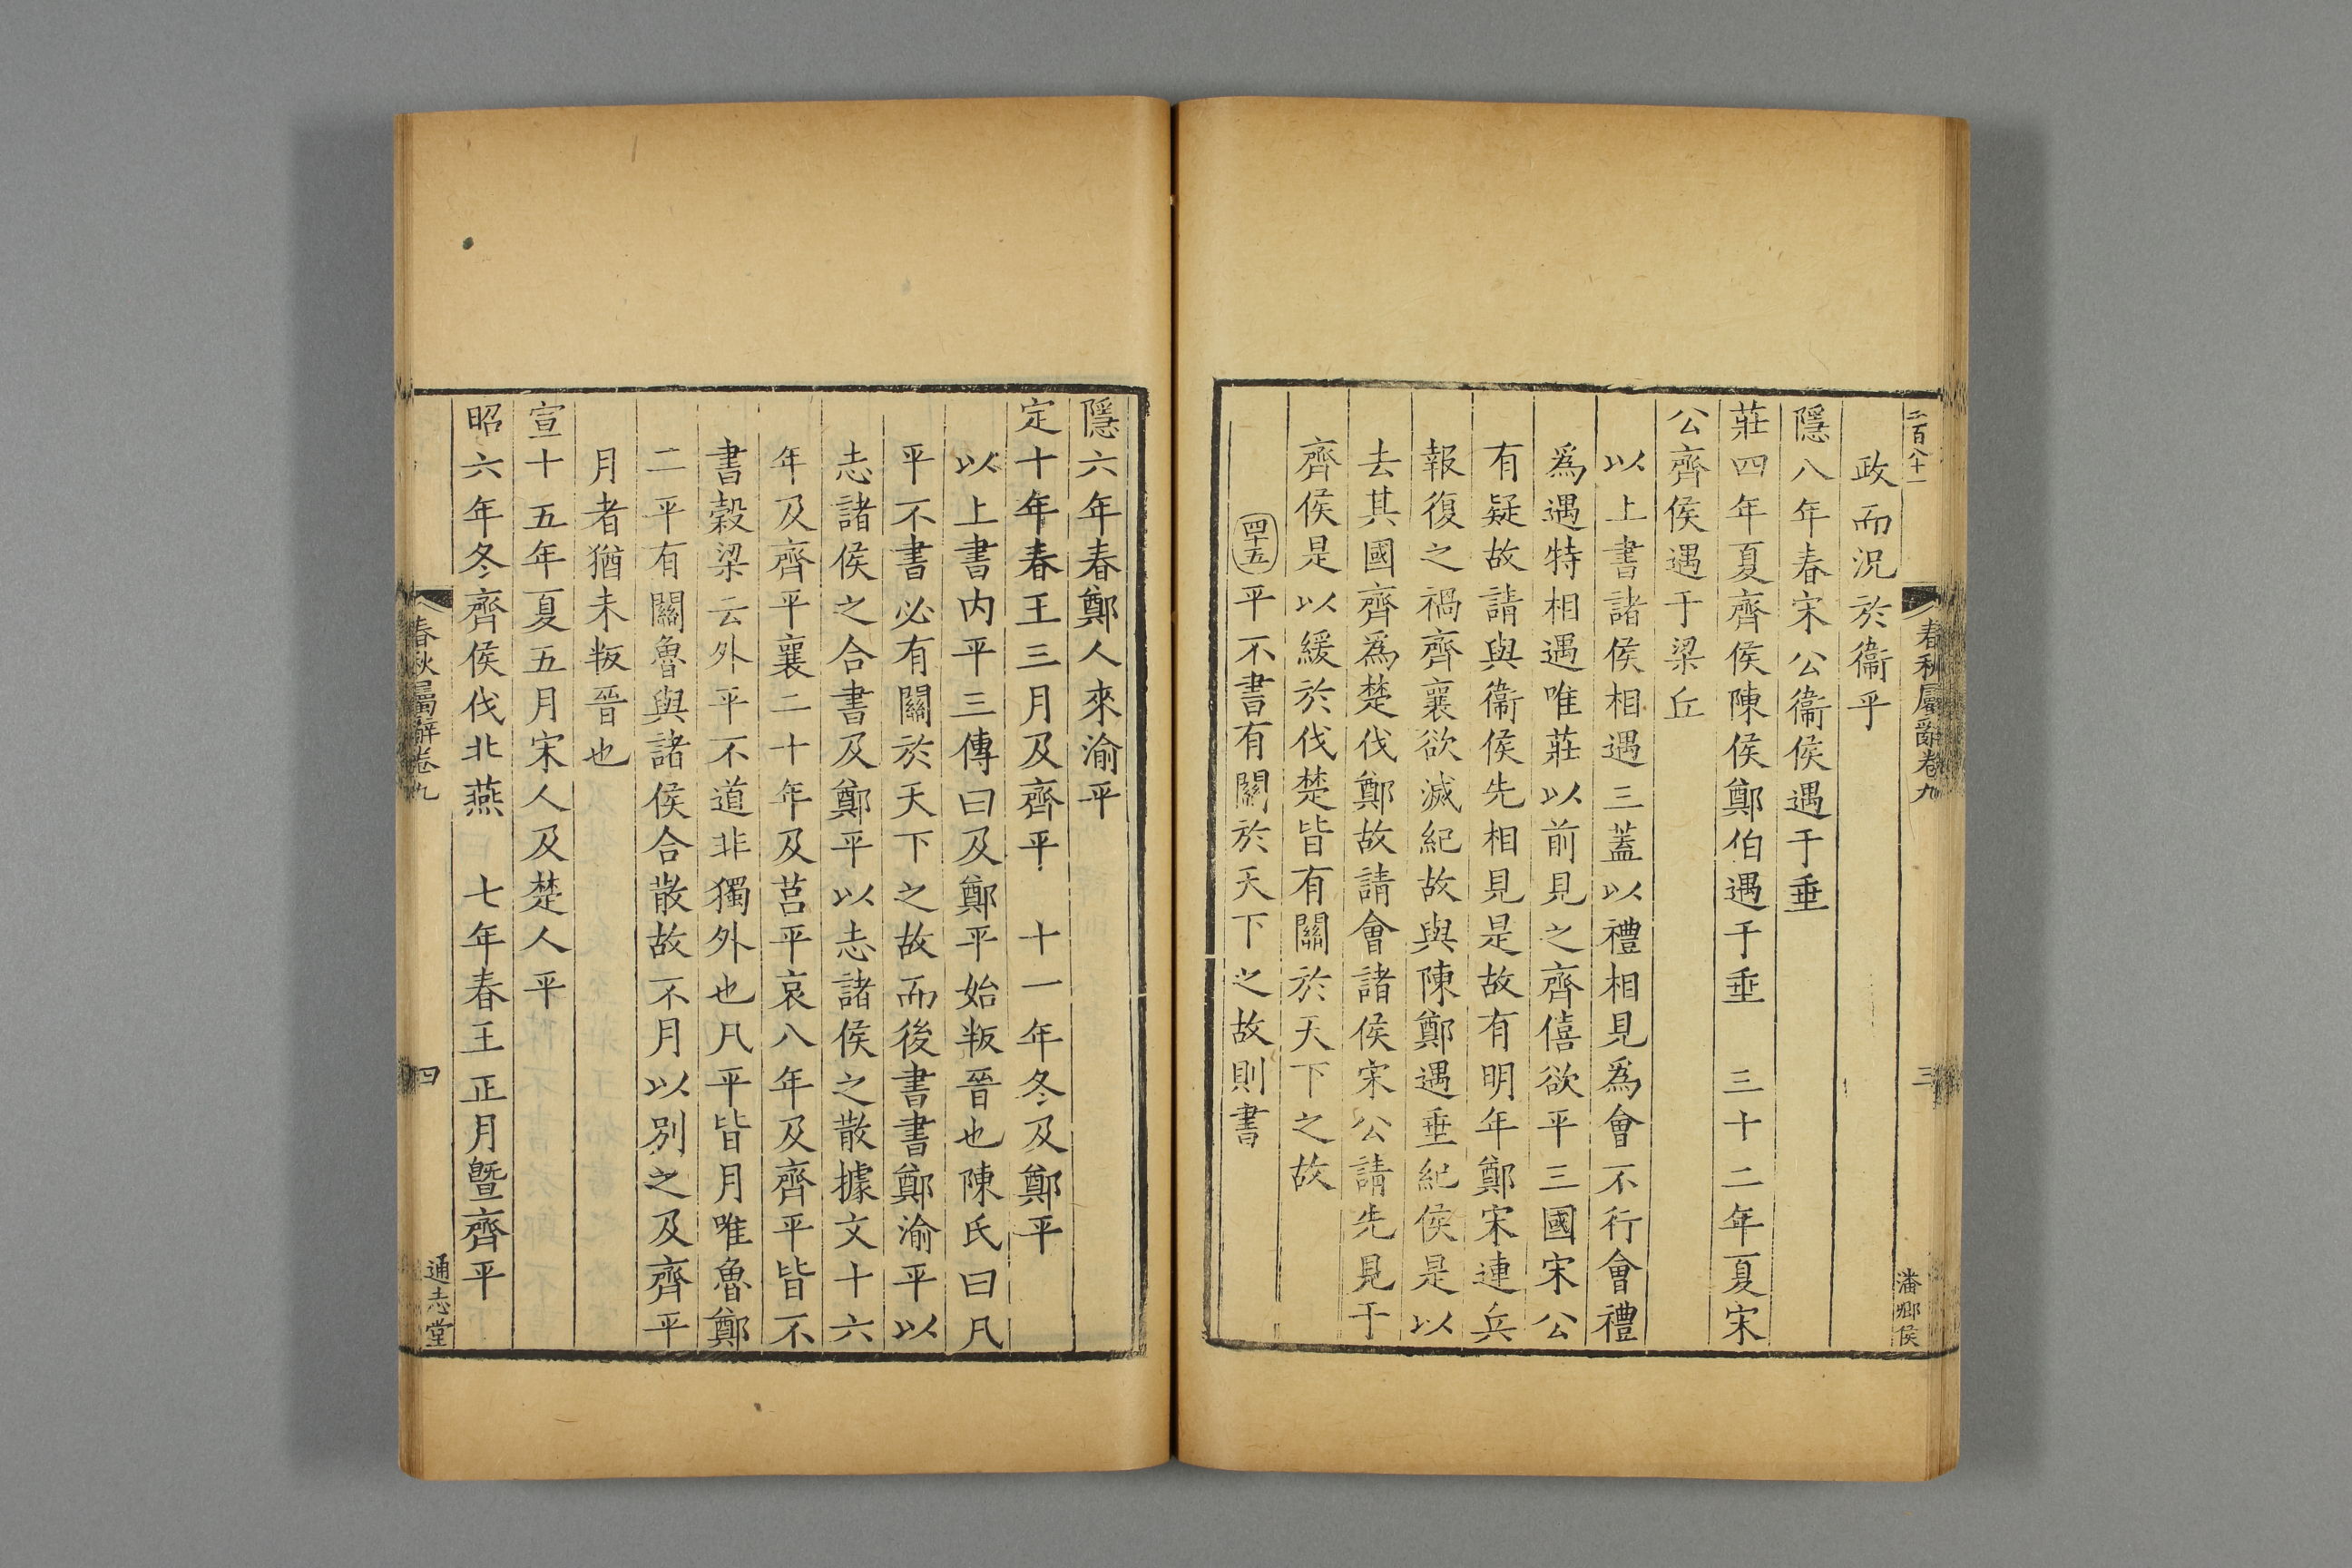 二百八十一
春秋屬辭卷九
三
潘鄉侯
政而況於衞乎
隱八年春宋公衞侯遇于垂
莊四年夏齊侯陳侯鄭伯遇于垂　三十二年夏宋
公齊侯遇于梁丘
以上書諸侯相遇三蓋以禮相見爲會不行會禮
爲遇特相遇唯莊以前見之齊僖欲平三國宋公
有疑故請與衞侯先相見是故有明年鄭宋連兵
報復之禍齊襄欲滅紀故與陳鄭遇垂紀侯是以
去其國齊爲楚伐鄭故請會諸侯宋公請先見于
齊侯是以緩於伐楚皆有關於天下之故
四十五平不書有關於天下之故則書
隱六年春鄭人來渝平
定十年春王三月及齊平　十一年冬及鄭平
以上書内平三傳曰及鄭平始叛晉也陳氏曰凡
平不書必有關於天下之故而後書書鄭渝平以
志諸侯之合書及鄭平以志諸侯之散據文十六
年及齊平襄二十年及莒平哀八年及齊平皆不
書穀梁云外平不道非獨外也凡平皆月唯魯鄭
二平有關魯與諸侯合散故不月以別之及齊平
月者猶未叛晉也
宣十五年夏五月宋人及楚人平
昭六年冬齊侯伐北燕　七年春王正月曁齊平
春秋屬辭卷九
四
通志堂